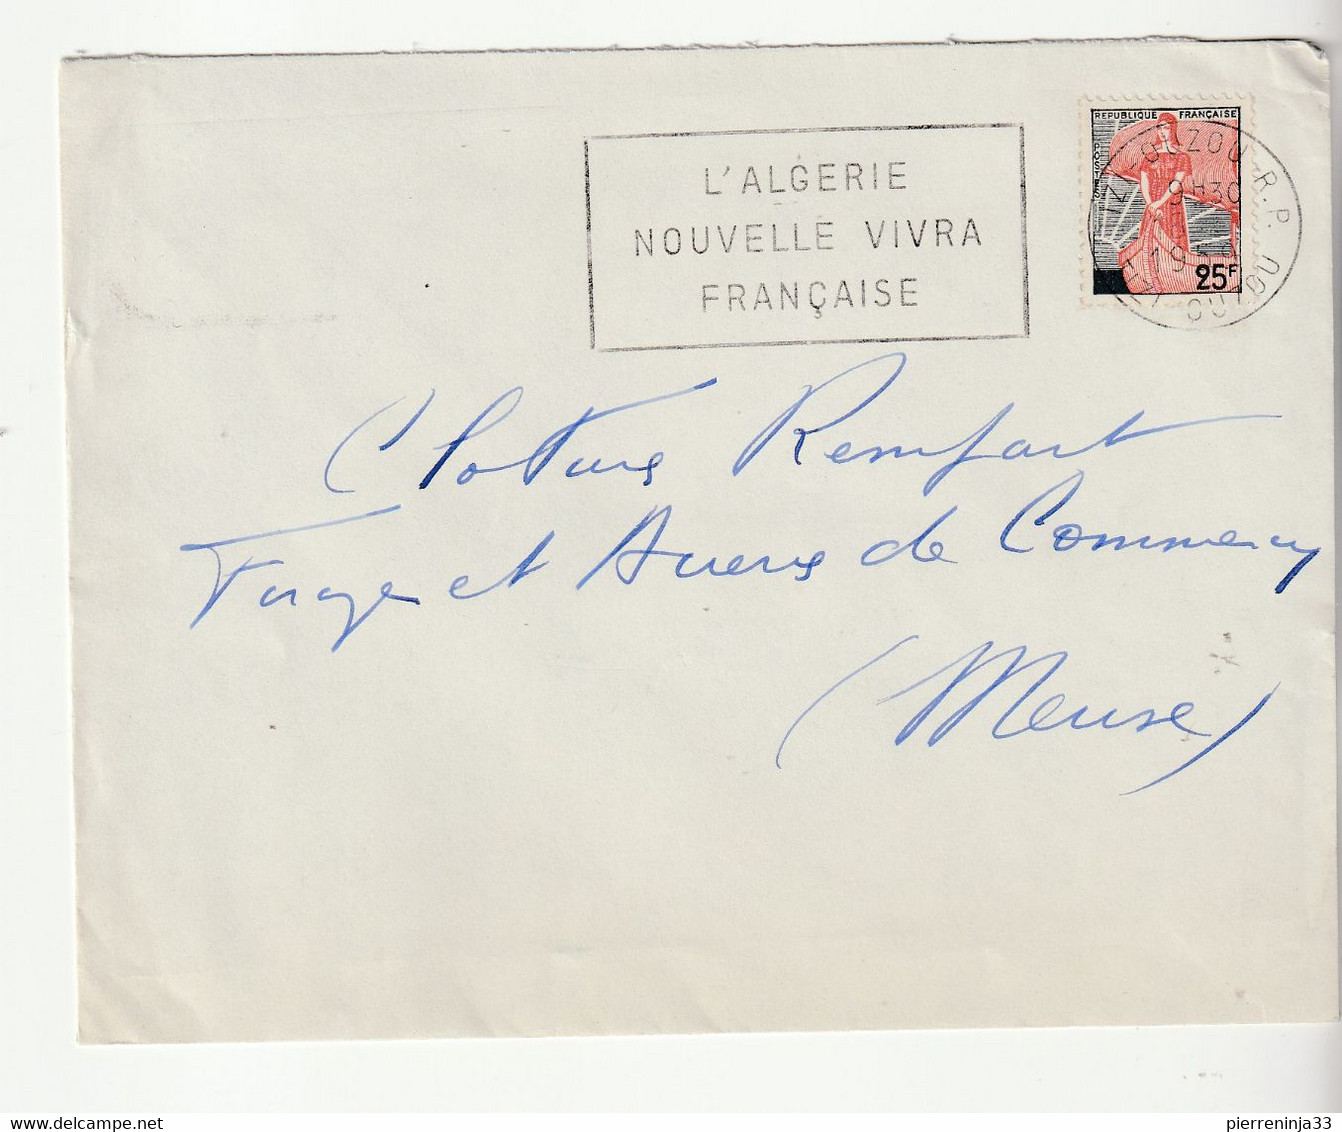 L'ALGERIE
NOUVELLE VIVRA
FRANÇAISE
REPUBLIQUE FRANÇAISE
POSTES
TIZI-OUZOU R.P.
9H30
19
25F
TIZI OUZOU
Cloture Remfort
Forge et Acieries de Commercy
(Meuse)
delcampe.net
pierreninja33